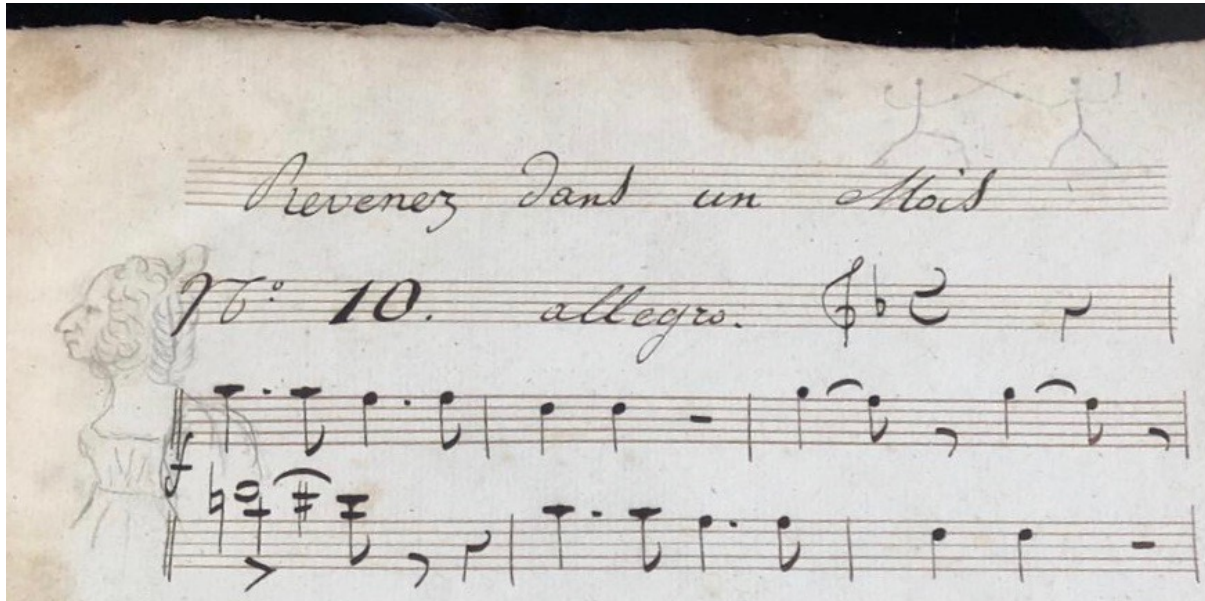 Revenez dans un Mois
N.º 10. allegro.
f